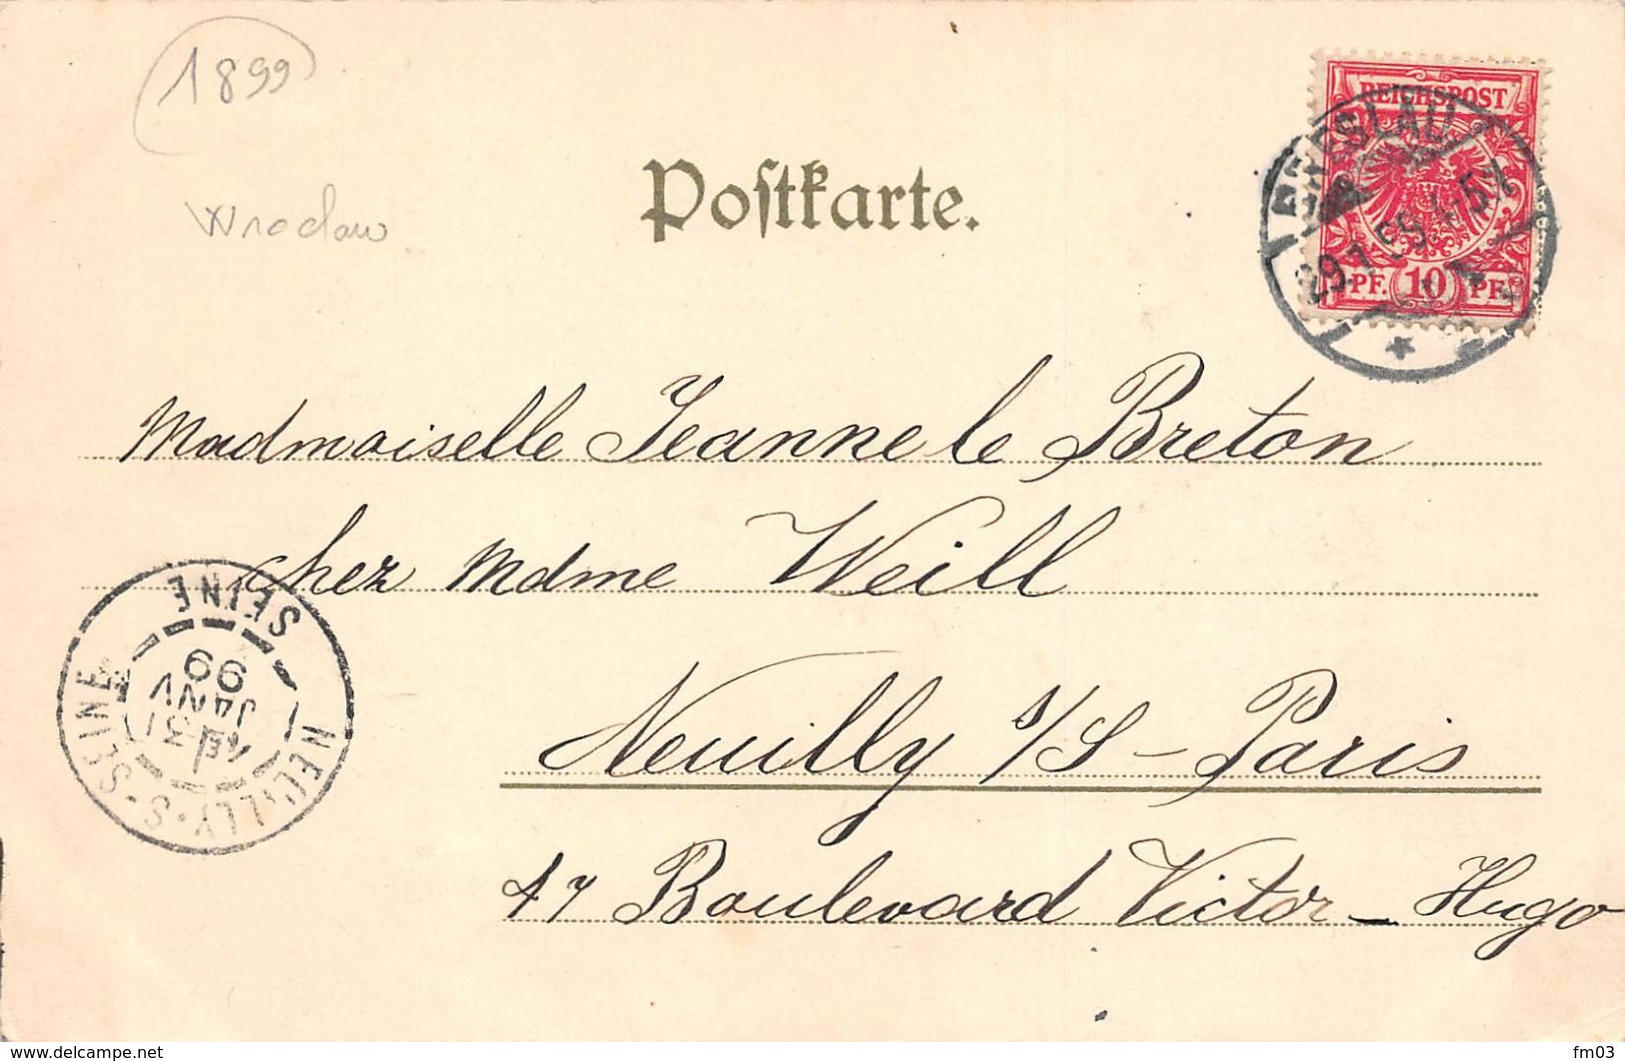 1899
Wroclaw
Postkarte.
REICHSPOST
PF. 10 PF.
BRESLAU
29.1.99.4-5
Madmoiselle Jeanne le Breton
chez Mdme Weill
Neuilly s/S - Paris
47 Boulevard Victor - Hugo
NEUILLY-S-SEINE
SEINE
31
JANV
99
www.delcampe.net
fm03